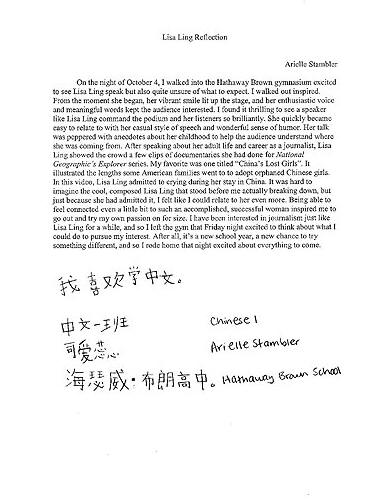 Lisa Ling Reflection
Arielle Stambler
On the night of October 4, I walked into the Hathaway Brown gymnasium excited
to see Lisa Ling speak but also quite unsure of what to expect. I walked out inspired.
From the moment she began, her vibrant smile lit up the stage, and her enthusiastic voice
and meaningful words kept the audience interested. I found it thrilling to see a speaker
like Lisa Ling command the podium and her listeners so brilliantly. She quickly became
easy to relate to with her casual style of speech and wonderful sense of humor. Her talk
was peppered with anecdotes about her childhood to help the audience understand where
she was coming from. After speaking about her adult life and career as a journalist, Lisa
Ling showed the crowd a few clips of documentaries she had done for National
Geographic's Explorer series. My favorite was one titled "China's Lost Girls". It
illustrated the lengths some American families went to to adopt orphaned Chinese girls.
In this video, Lisa Ling admitted to crying during her stay in China. It was hard to
imagine the cool, composed Lisa Ling that stood before me actually breaking down, but
just because she had admitted it, I felt like I could relate to her even more. Being able to
feel connected even a little bit to such an accomplished, successful woman inspired me to
go out and try my own passion on for size. I have been interested in journalism just like
Lisa Ling for a while, and so I left the gym that Friday night excited to think about what I
could do to pursue my interest. After all, it's a new school year, a new chance to try
something different, and so I rode home that night excited about everything to come.
我喜欢学中文。
中文一班 Chinese 1
可爱蕊 Arielle Stambler
海瑟威·布朗高中。Hathaway Brown School